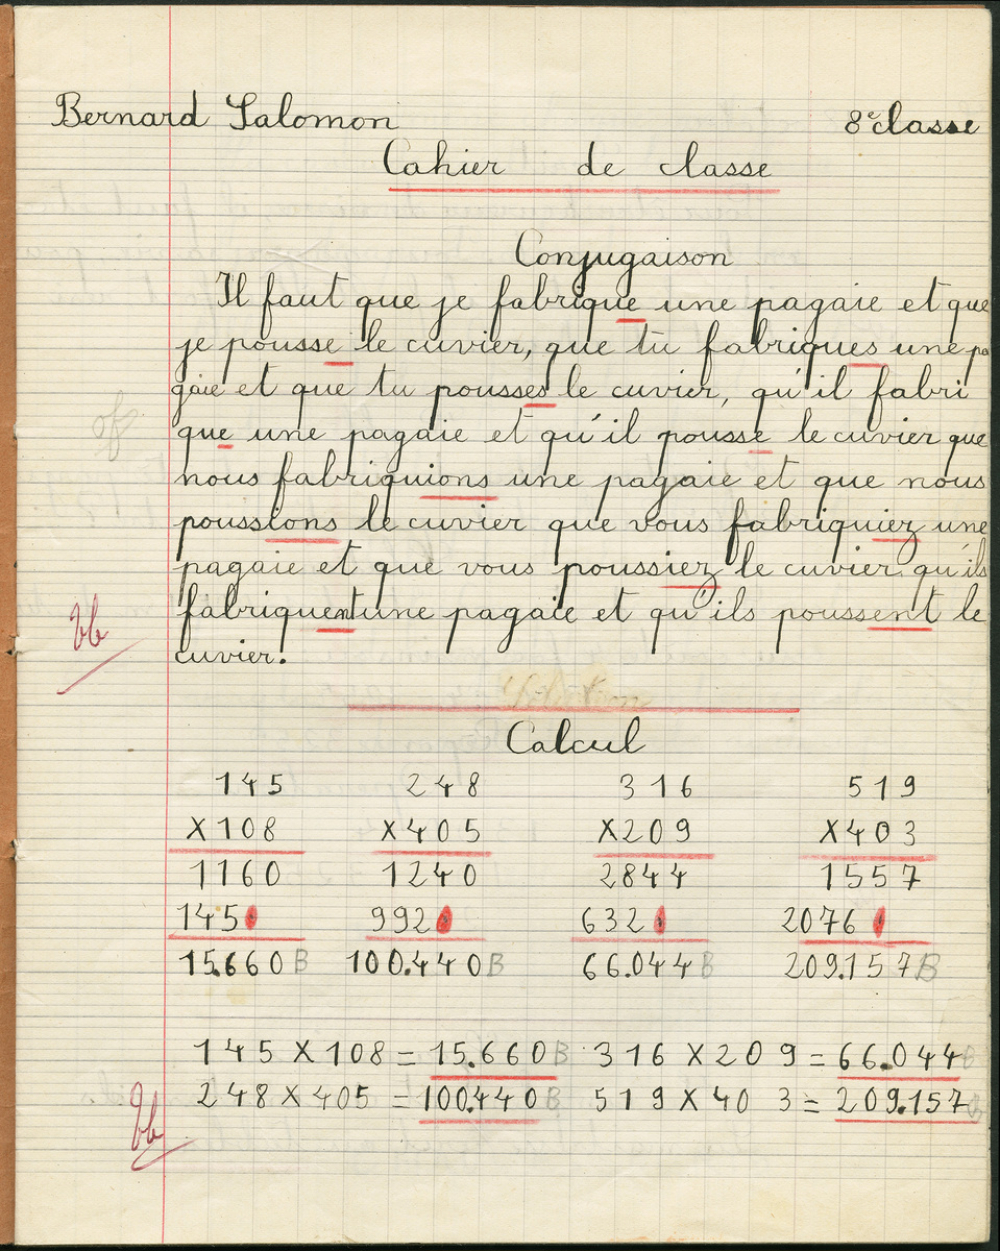 Bernard Salomon 8e classe
Cahier de classe
Conjugaison
Il faut que je fabrique une pagaie et que
je pousse le cuvier, que tu fabriques une pa
gaie et que tu pousses le cuvier, qu'il fabri
que une pagaie et qu'il pousse le cuvier que
nous fabriquions une pagaie et que nous
poussions le cuvier que vous fabriquiez une
pagaie et que vous poussiez le cuvier qu'ils
fabriquent une pagaie et qu'ils poussent le
cuvier.
Calcul
145 248 316 519
X108 X405 X209 X403
1160 1240 2844 1557
145 992 632 2076
15.660 B 100.440 B 66.044 B 209.157 B
145 X 108 = 15.660 B 316 X 209 = 66.044 B
248 X 405 = 100.440 B 519 X 403 = 209.157 B